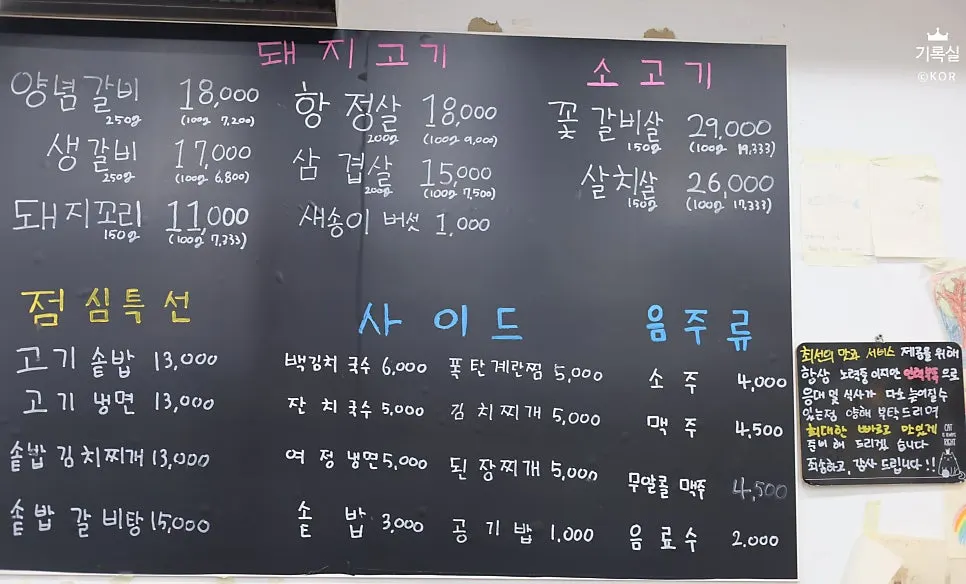 돼지고기
양념갈비 18,000
250g (100g 7,200)
생갈비 17,000
250g (100g 6,800)
돼지꼬리 11,000
150g (100g 7,333)
항정살 18,000
200g (100g 9,000)
삼겹살 15,000
200g (100g 7,500)
새송이 버섯 1,000
소고기
꽃갈비살 29,000
150g (100g 19,333)
살치살 26,000
150g (100g 17,333)
점심특선
고기 솥밥 13,000
고기 냉면 13,000
솥밥 김치찌개 13,000
솥밥 갈비탕 15,000
사이드
백김치 국수 6,000
잔치국수 5,000
여정냉면 5,000
솥밥 3,000
폭탄계란찜 5,000
김치찌개 5,000
된장찌개 5,000
공기밥 1,000
음주류
소주 4,000
맥주 4,500
무알콜 맥주 4,500
음료수 2,000
최선의 맛과 서비스 제공을 위해
항상 노력중이지만 인력부족으로
응대 및 식사가 다소 늦어질수
있는점 양해 부탁드리며
최대한 빠르고 맛있게
준비해 드리겠습니다
죄송하고, 감사 드립니다!!
CAT IS ALWAYS RIGHT
기록실
©KOR